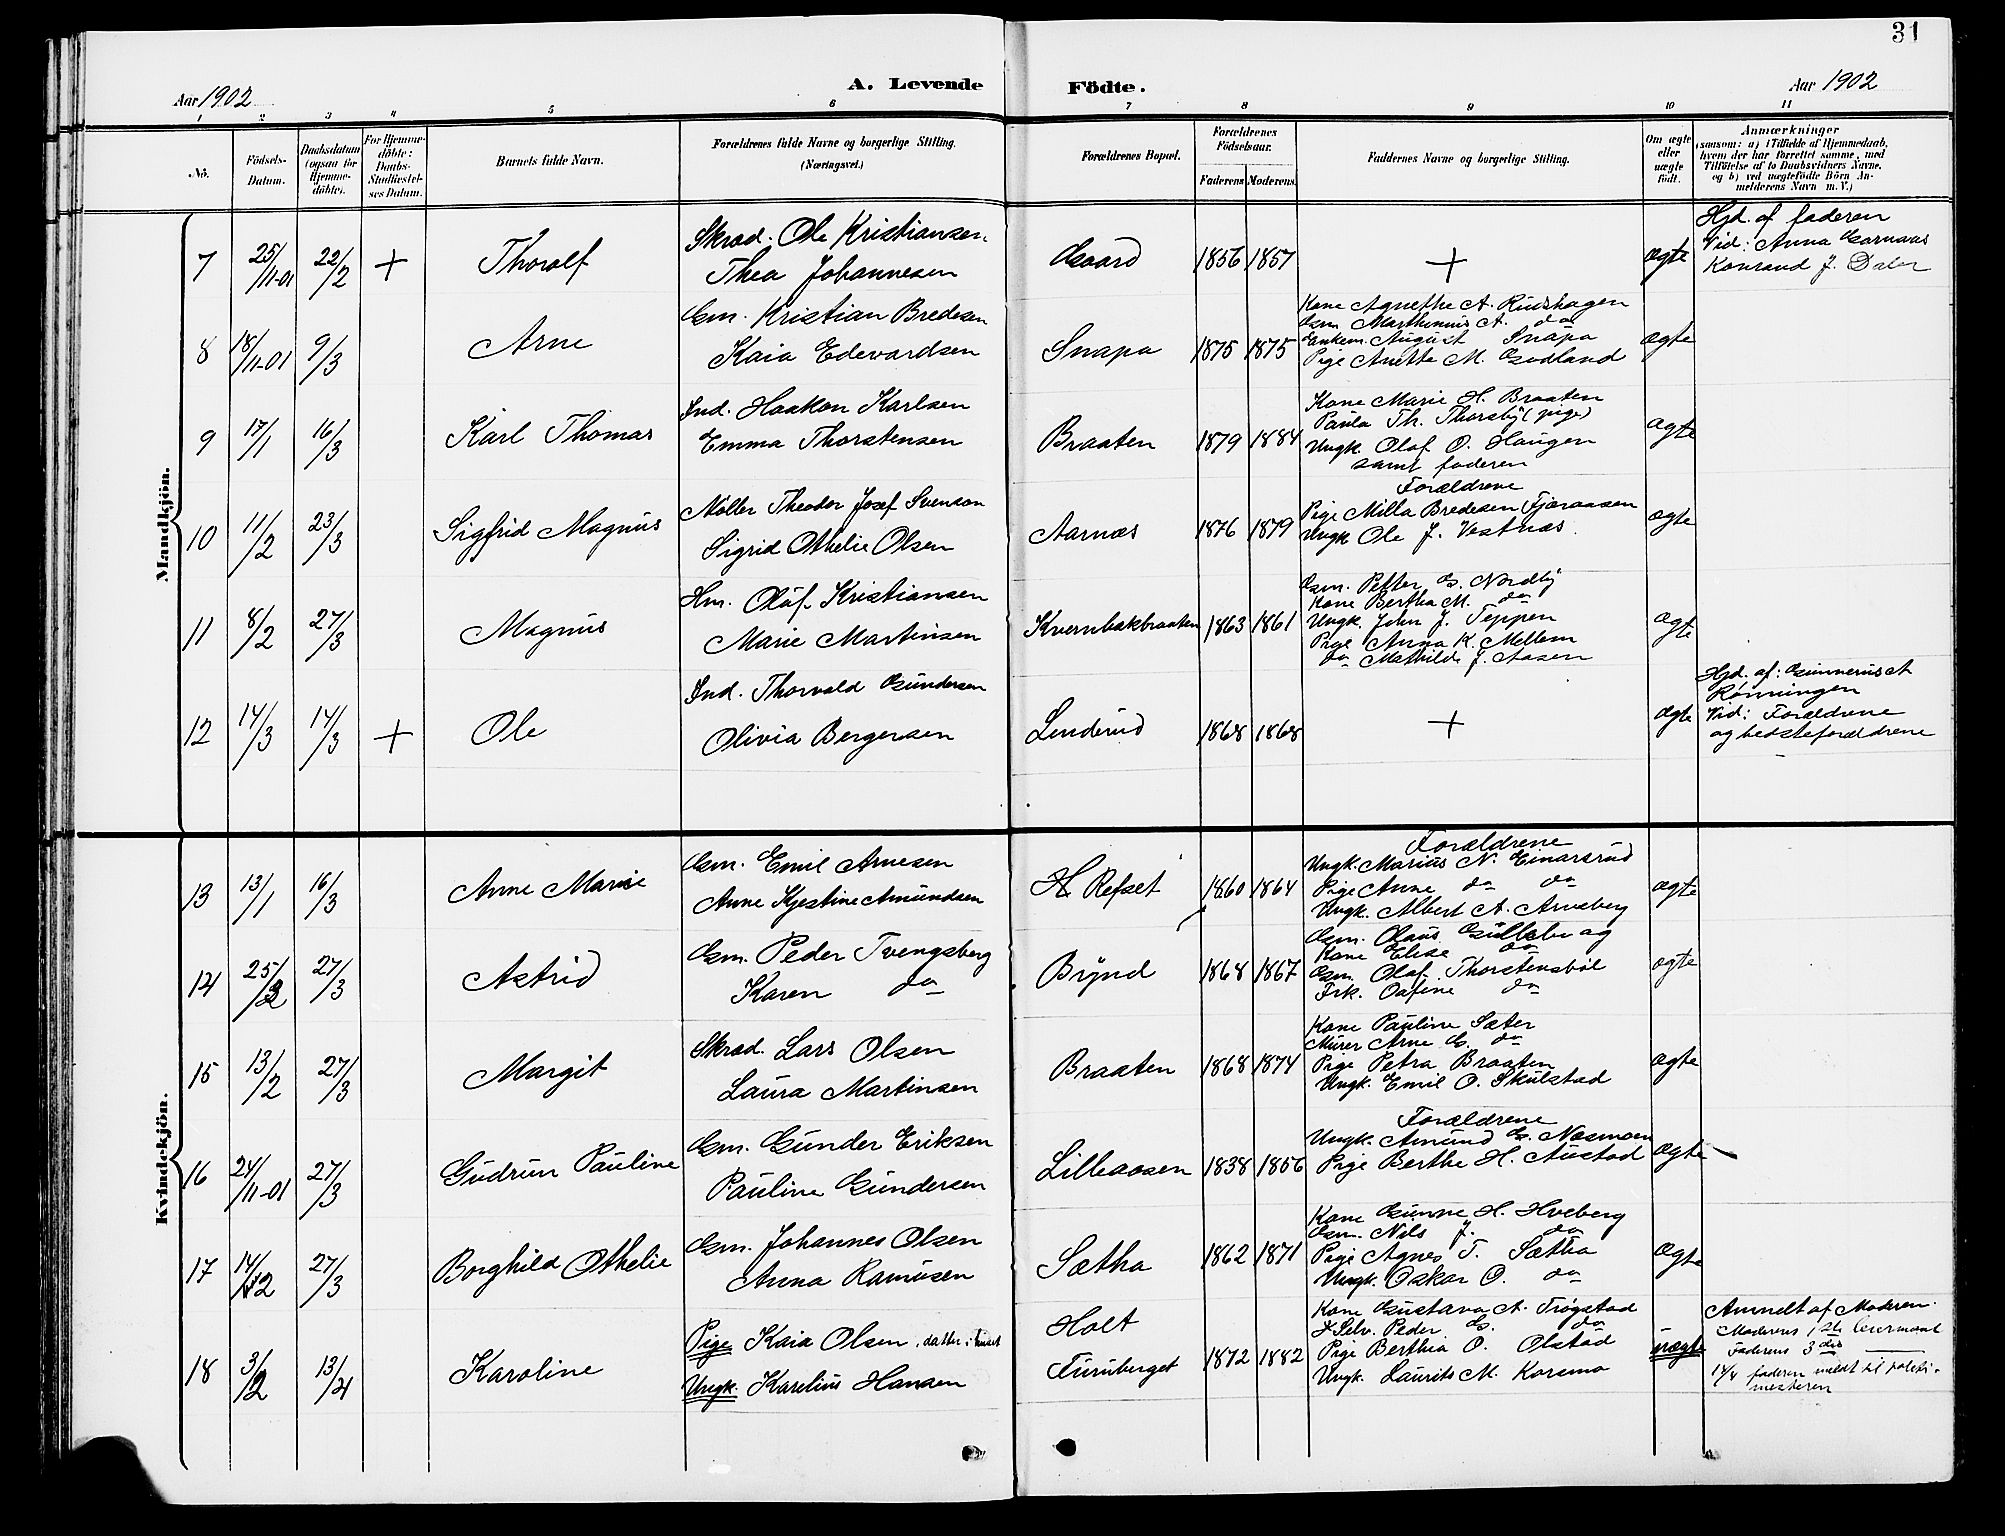 31
Aar 1902
A. Levende
Födte.
Aar 1902
1 2 3 4 5 6 7 8 9 10 11
No.
Födsels-
Datum.
Daabsdatum
(ogsaa for
Hjemme-
döbte).
For Hjemme-
döbte:
Daabs-
Stadfæstel-
ses Datum.
Barnets fulde Navn.
Forældrenes fulde Navne og borgerlige Stilling.
(Næringsvei.)
Forældrenes Bopæl.
Forældrenes
Födselsaar.
Faderens Moderens.
Faddernes Navne og borgerlige Stilling.
Om ægte
eller
uægte
födt.
Anmærkninger
(saasom: a) i Tilfælde af Hjemmedaab,
hvem der har forrettet samme, med
Tilföielse af to Daabsvidners Navne,
og b) ved uegtefödte Börn An-
melderens Navn m. V.)
Mandkjön.
7 25/11-01 22/2 + Thorolf
Skræd. Ole Kristiansen
Thea Johannesen
Gaard 1856 1857 + ægte
Hjd. af faderen
Vid: Anna
Konrand J.
8 18/11-01 9/3 Arne
Gm. Kristian Bredesen
Kaia Edevardsen
Snapa 1875 1875
Kone Agnethe A. Rudshagen
Gsm. Marthinius A. do
Enkem. August Snapa
Pige Anette M. Godland
ægte
9 17/1 16/3 Karl Thomas
Ind. Haakon Karlsen
Emma Thorstensen
Braaten 1879 1884
Kone Marie H. Braaten
Paula Th. Thorsby (pige)
Ungk. Olaf O. Haugen
samt faderen
ægte
10 11/2 23/3 Sigfrid Magnus
Møller Theodor Josef Svenson
Sigrid Othelie Olsen
Aarnæs 1876 1879
Forældrene
Pige Milla Bredesen Fjæraasen
Ungk Ole J. Vestnæs.
ægte
11 8/2 27/3 Magnus
Hm. Olaf Kristiansen
Marie Martinsen
Kvernbækbraaten 1863 1861
Gsm. Petter G. Nordby
Kone Bertha M. do
Ungk. John J. Teppen
Pige Anna K. Mellem
do Mathilde J. Aasen
ægte
12 14/3 14/3 + Ole
Ind. Thorvald Gundersen
Olivia Bergersen
Linderud 1868 1868 + ægte
Hjd. af: Gunnerius A
Rønningen
Vid: Forældrene
og bedsteforældrene
Kvindekjön.
13 13/1 16/3 Anne Marie
Gsm. Emil Arnesen
Anne Kjestine Amundsen
H Refset 1860 1864
Forældrene
Ungk. Marius N. Einarsrud
Pige Anne do do
Ungk. Albert A. Arneberg
ægte
14 25/2 27/3 Astrid
Gsm. Peder Tvengsberg
Karen do
Brynd 1868 1867
Gsm. Olaus Gulliksen og
Kone Elise do
Gsm. Olaf Thorstensbøl
Frk. Oafine do
ægte
15 13/2 27/3 Margit
Skræd. Lars Olsen
Laura Martinsen
Braaten 1868 1874
Kone Pauline Sæter
Murer Arne G. do
Pige Petra Braaten
Ungk. Emil O. Skulstad
ægte
16 24/11-01 27/3 Gudrun Pauline
Gsm. Gunder Eriksen
Pauline Gundersen
Lilleaasen 1838 1856
Forældrene
Ungk. Amund G. Næsmoen
Pige Berthe H. Austad
ægte
17 14/12 27/3 Borghild Othelie
Gsm. Johannes Olsen
Anna Ramusen
Sætha 1862 1871
Kone Gunne H. Hveberg
Gsm. Nils J. do
Pige Agnes T. Sætha
Ungk. Oskar O. do
ægte
18 3/2 13/4 Karoline
Pige Kaia Olsen, datter i huset
Ungk. Karelius Hansen
Holt
Furuberget 1872 1882
Kone Gustava A. Trøgstad
Selv. Peder G. do
Pige Berthia O. Olstad
Ungk. Laurits M. Korsmo
uægte
Anmeldt af Moderen.
Moderens 1ste leiermaal
Faderens 3die
14/4 faderen meldt til politi-
mesteren